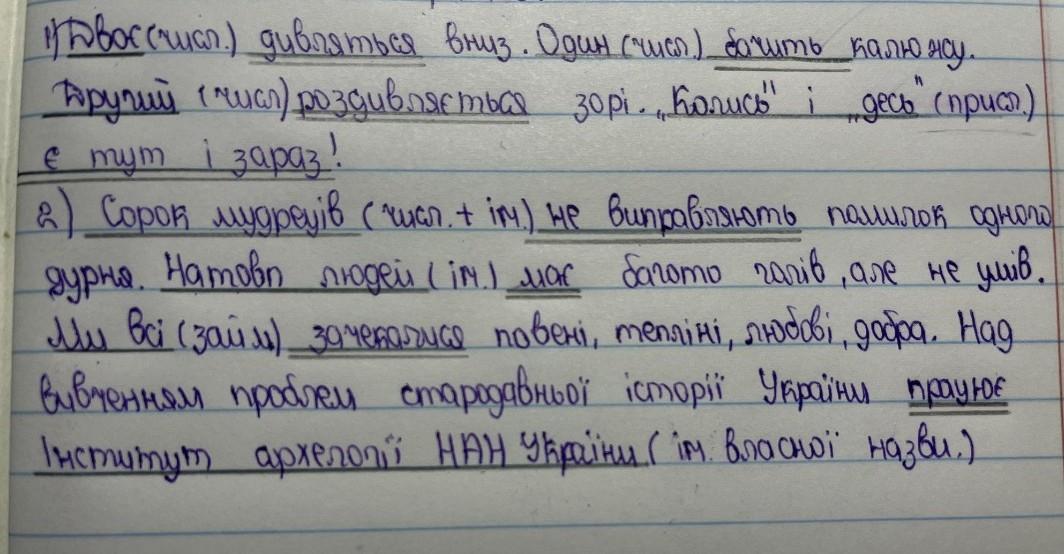 1) Двоє (числ.) дивляться вниз. Один (числ.) бачить калюжу.
Другий (числ) роздивляється зорі. „Колись" і „десь" (присл.)
є тут і зараз!
2) Сорок мудреців (числ. + ім.) не виправляють помилок одного
дурня. Натовп людей (ім.) має багато голів, але не умів.
Ми всі (займ) зачекалися повені, тепліні, любові, добра. Над
вивченням проблем стародавньої історії України працює
Інститут архелогії НАН України (ім. власної назви.)